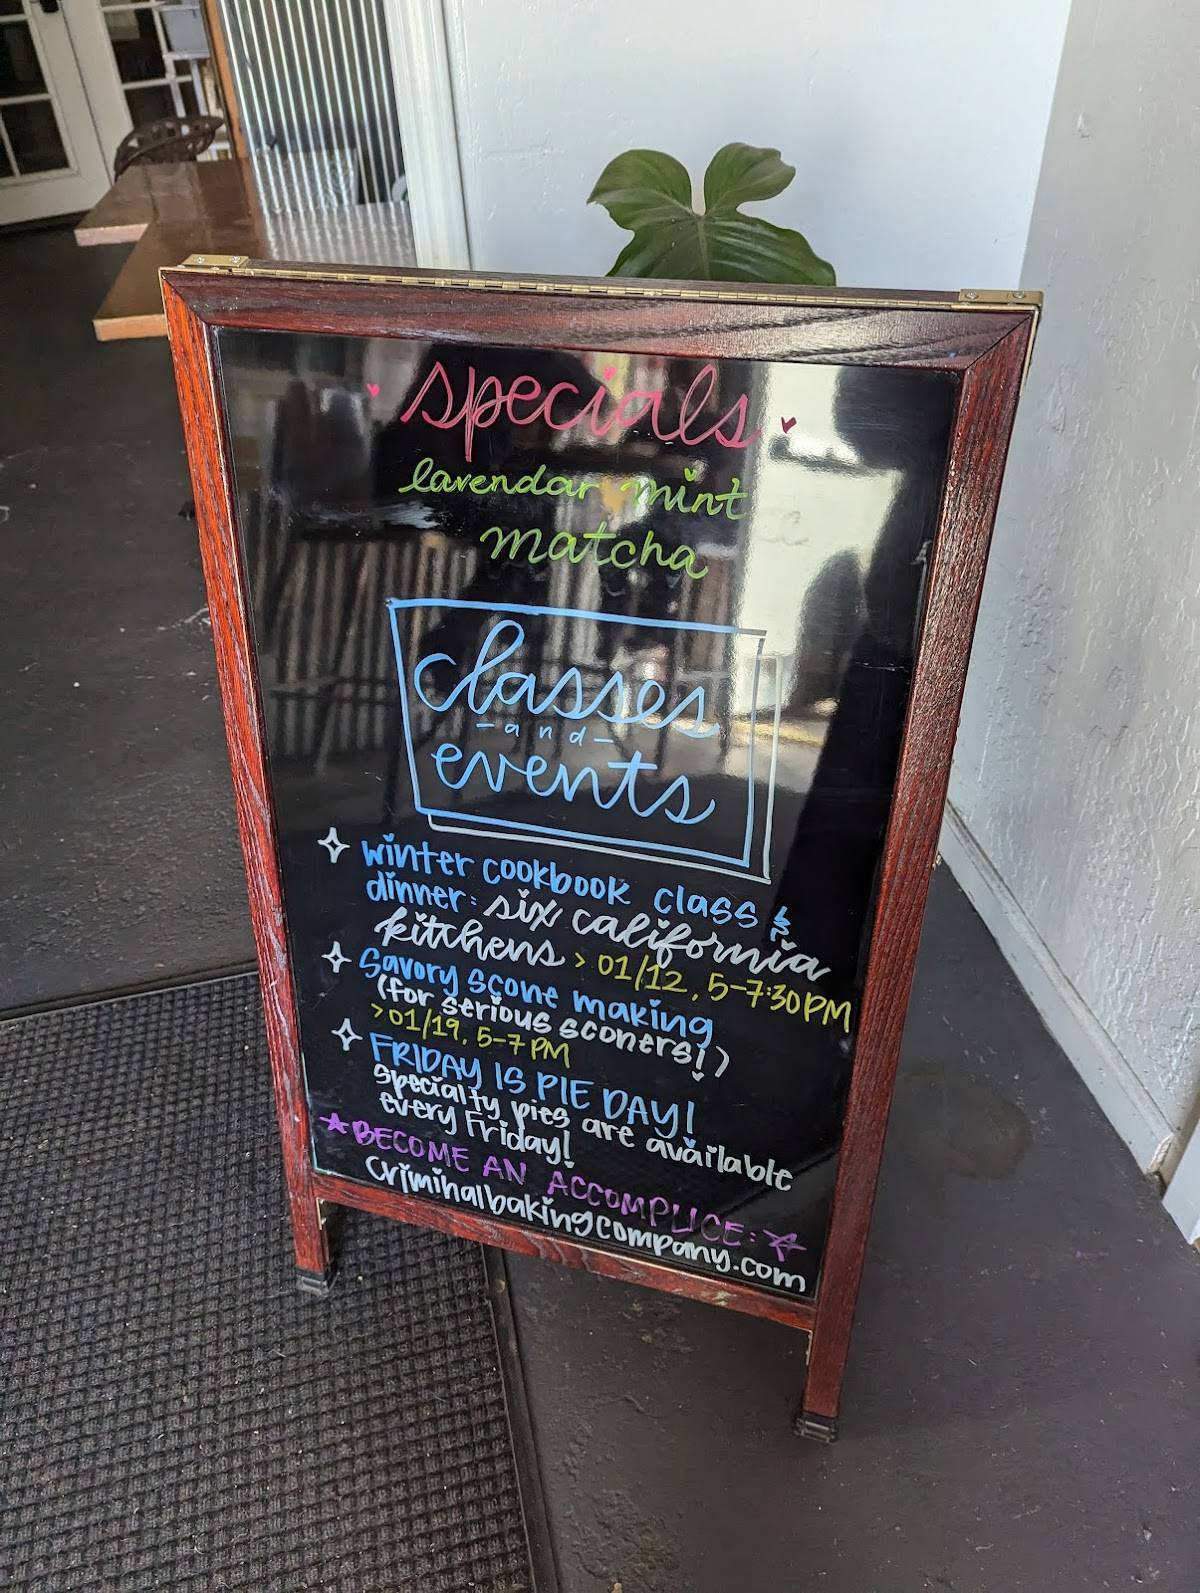 specials
lavendar mint
matcha
classes
-and-
events
winter cookbook class &
dinner: six california
kitchens > 01/12, 5-7:30PM
Savory scone making
(for serious sconers!)
>01/19, 5-7PM
FRIDAY IS PIE DAY!
specialty pies are available
every Friday!
BECOME AN ACCOMPLICE:
criminalbakingcompany.com